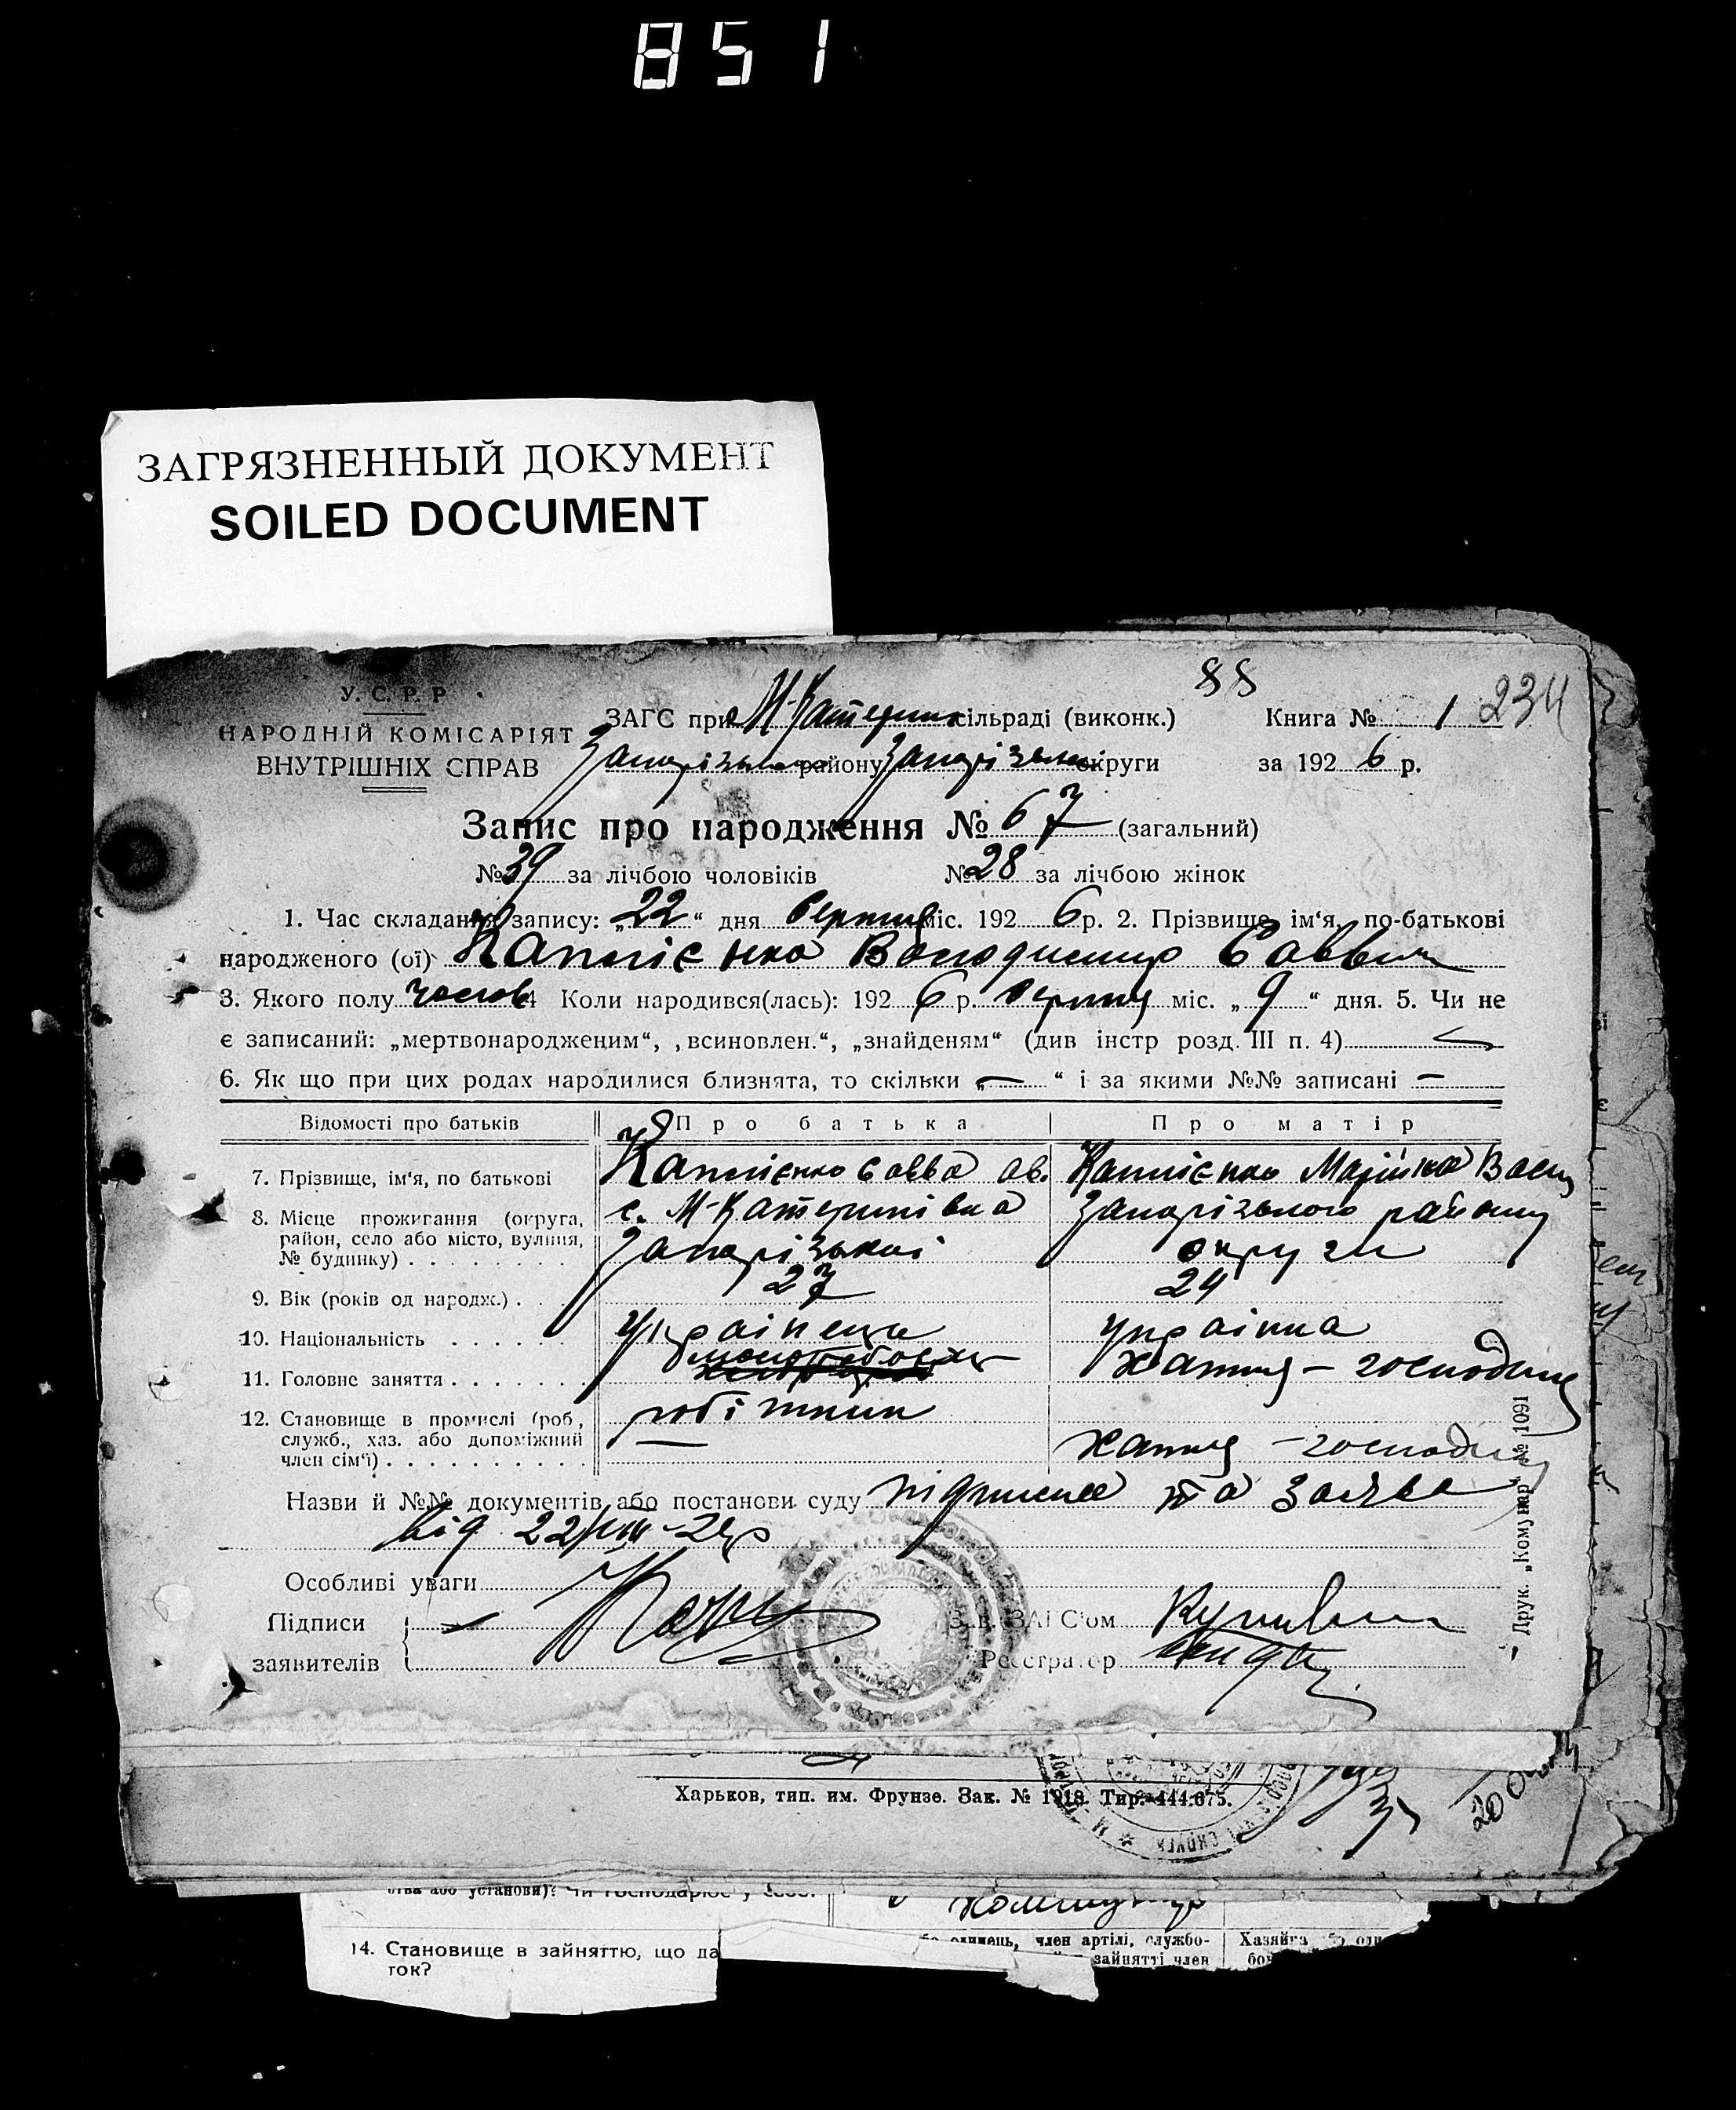 851
ЗАГРЯЗНЕННЫЙ ДОКУМЕНТ
SOILED DOCUMENT
88
У.С.Р.Р
НАРОДНІЙ КОМІСАРІЯТ
ВНУТРІШНІХ СПРАВ
ЗАГС при М-Катерин сільраді (виконк.) Книга № 1 234
Запорізького району Запорізької округи за 1926 р.
Запис про народження № 67 (загальний)
№ 39 за лічбою чоловіків № 28 за лічбою жінок
1. Час складання запису: „22“ дня серпня міс. 1926 р. 2. Прізвище, ім‘я, по-батькові
народженого (ої) Володимир Савви
3. Якого полу чолов 4 Коли народився(лась): 1926 р. серпня міс. „9“ дня. 5. Чи не
є записаний: „мертвонародженим“, „всиновлен.“, „знайденям“ (див інстр розд. III п. 4)
6. Як що при цих родах народилися близнята, то скільки „—“ і за якими №№ записані —
Відомості про батьків Про батька Про матір
7. Прізвище, ім‘я, по батькові Савва Марійка Васил
8. Місце проживання (округа, район, село або місто, вулиця, № будинку) с. М-Катеринівка Запорізького району
Запорізької округи
9. Вік (років од народж.) 27 24
10. Національність Українець Українка
11. Головне заняття хатня - господиня
12. Становище в промислі (роб, служб., хаз. або допоміжний член сім‘ї) робітник
— хатня - господин
Назви й №№ документів або постанови суду підписка та заява
від 22/VIII-26р
Особливі уваги
Підписи
заявителів
Зав. ЗАГС‘ом
Реєстратор
Друк. „Комунар“ № 1091
Харьков, тип. им. Фрунзе. Зак. № 1918. Тир. 444.675.
ства або установи)? Чи господарює у
14. Становище в зайняттю, що да
ток?
одинець, член артілі, службо-
зайнятті член
Хазяйка